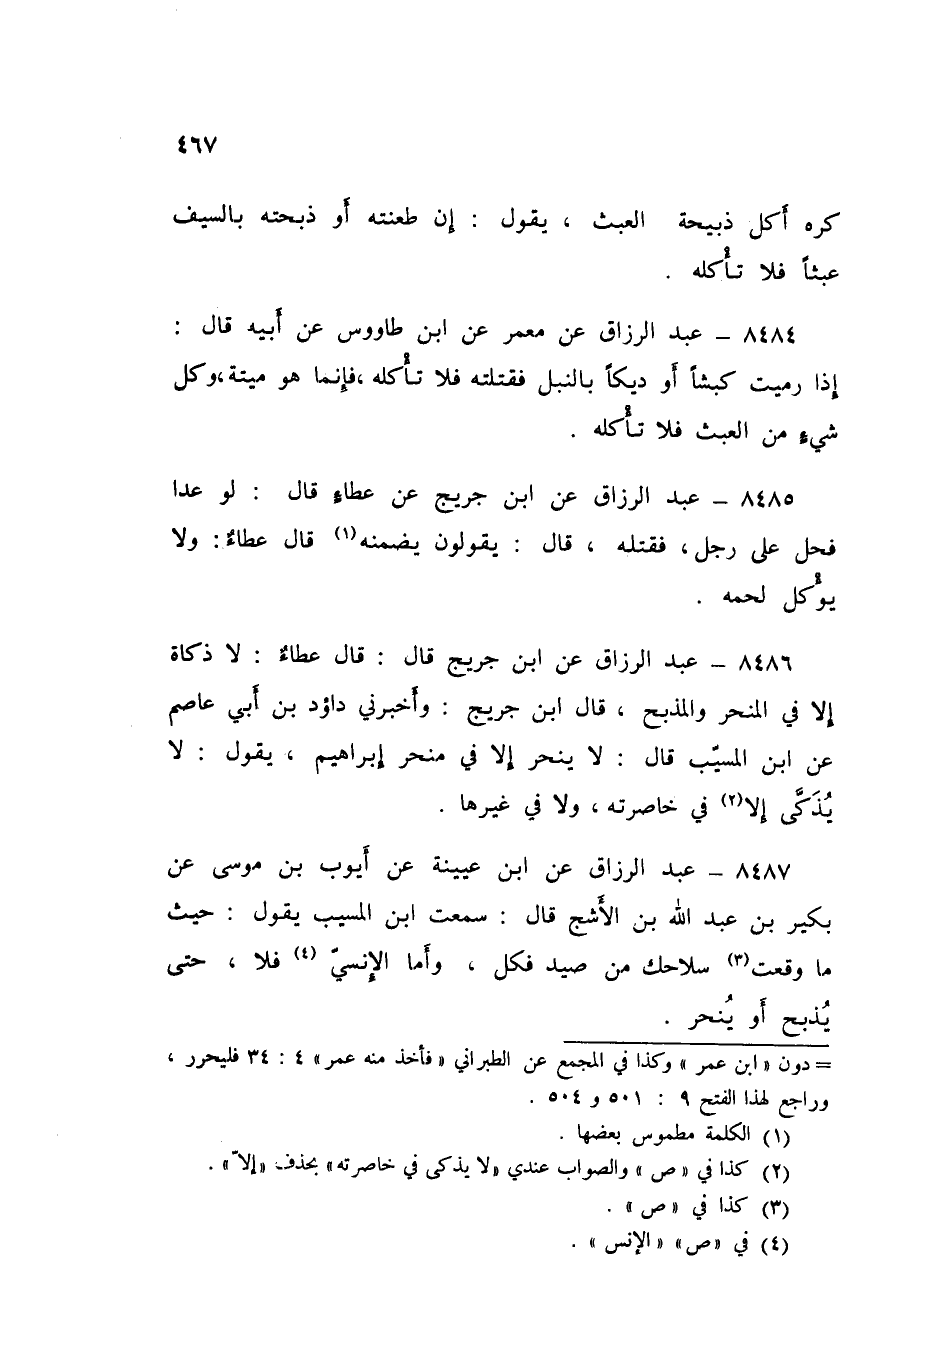 ٤٦٧
كره أَكل ذبيحة العبث ، يقول : إن طعنته أَو ذبحته بالسيف
عبثاً فلا تأْكله .
٨٤٨٤ – عبد الرزاق عن معمر عن ابن طاووس عن أَبيه قال :
إذا رميت كبشاً أَو ديكاً بالنبل فقتلته فلا تأْكله ،فإنما هو ميتة،وكل
شيءٍ من العبث فلا تأْكله .
٨٤٨٥ – عبد الرزاق عن ابن جريج عن عطاءٍ قال : لو عدا
فحل على رجل، فقتله ، قال : يقولون يضمنه(١) قال عطاءٌ: ولا
يؤْكل لحمه .
٨٤٨٦ – عبد الرزاق عن ابن جريج قال : قال عطاءٌ : لا ذكاة
إلا في المنحر والمذبح ، قال ابن جريج : وأَخبرني داؤد بن أَبي عاصم
عن ابن المسيّب قال : لا ينحر إلا في منحر إبراهيم ، يقول : لا
يُذَكَّى إلا(٢) في خاصرته ، ولا في غيرها .
٨٤٨٧ – عبد الرزاق عن ابن عيينة عن أَيوب بن موسى عن
بكير بن عبد الله بن الأَشج قال : سمعت ابن المسيب يقول : حيث
ما وقعت(٣) سلاحك من صيد فكل ، وأَما الإنسيّ (٤) فلا ، حتى
يُذبح أَو يُنحر .
= دون « ابن عمر » وكذا في المجمع عن الطبراني « فأخذ منه عمر » ٤ : ٣٤ فليحرر ،
وراجع لهذا الفتح ٩ : ٥٠١ و ٥٠٤ .
(١) الكلمة مطموس بعضها .
(٢) كذا في « ص » والصواب عندي «لا يذكى في خاصرته» بحذف «إلاّ» .
(٣) كذا في « ص » .
(٤) في «ص» « الإنس » .